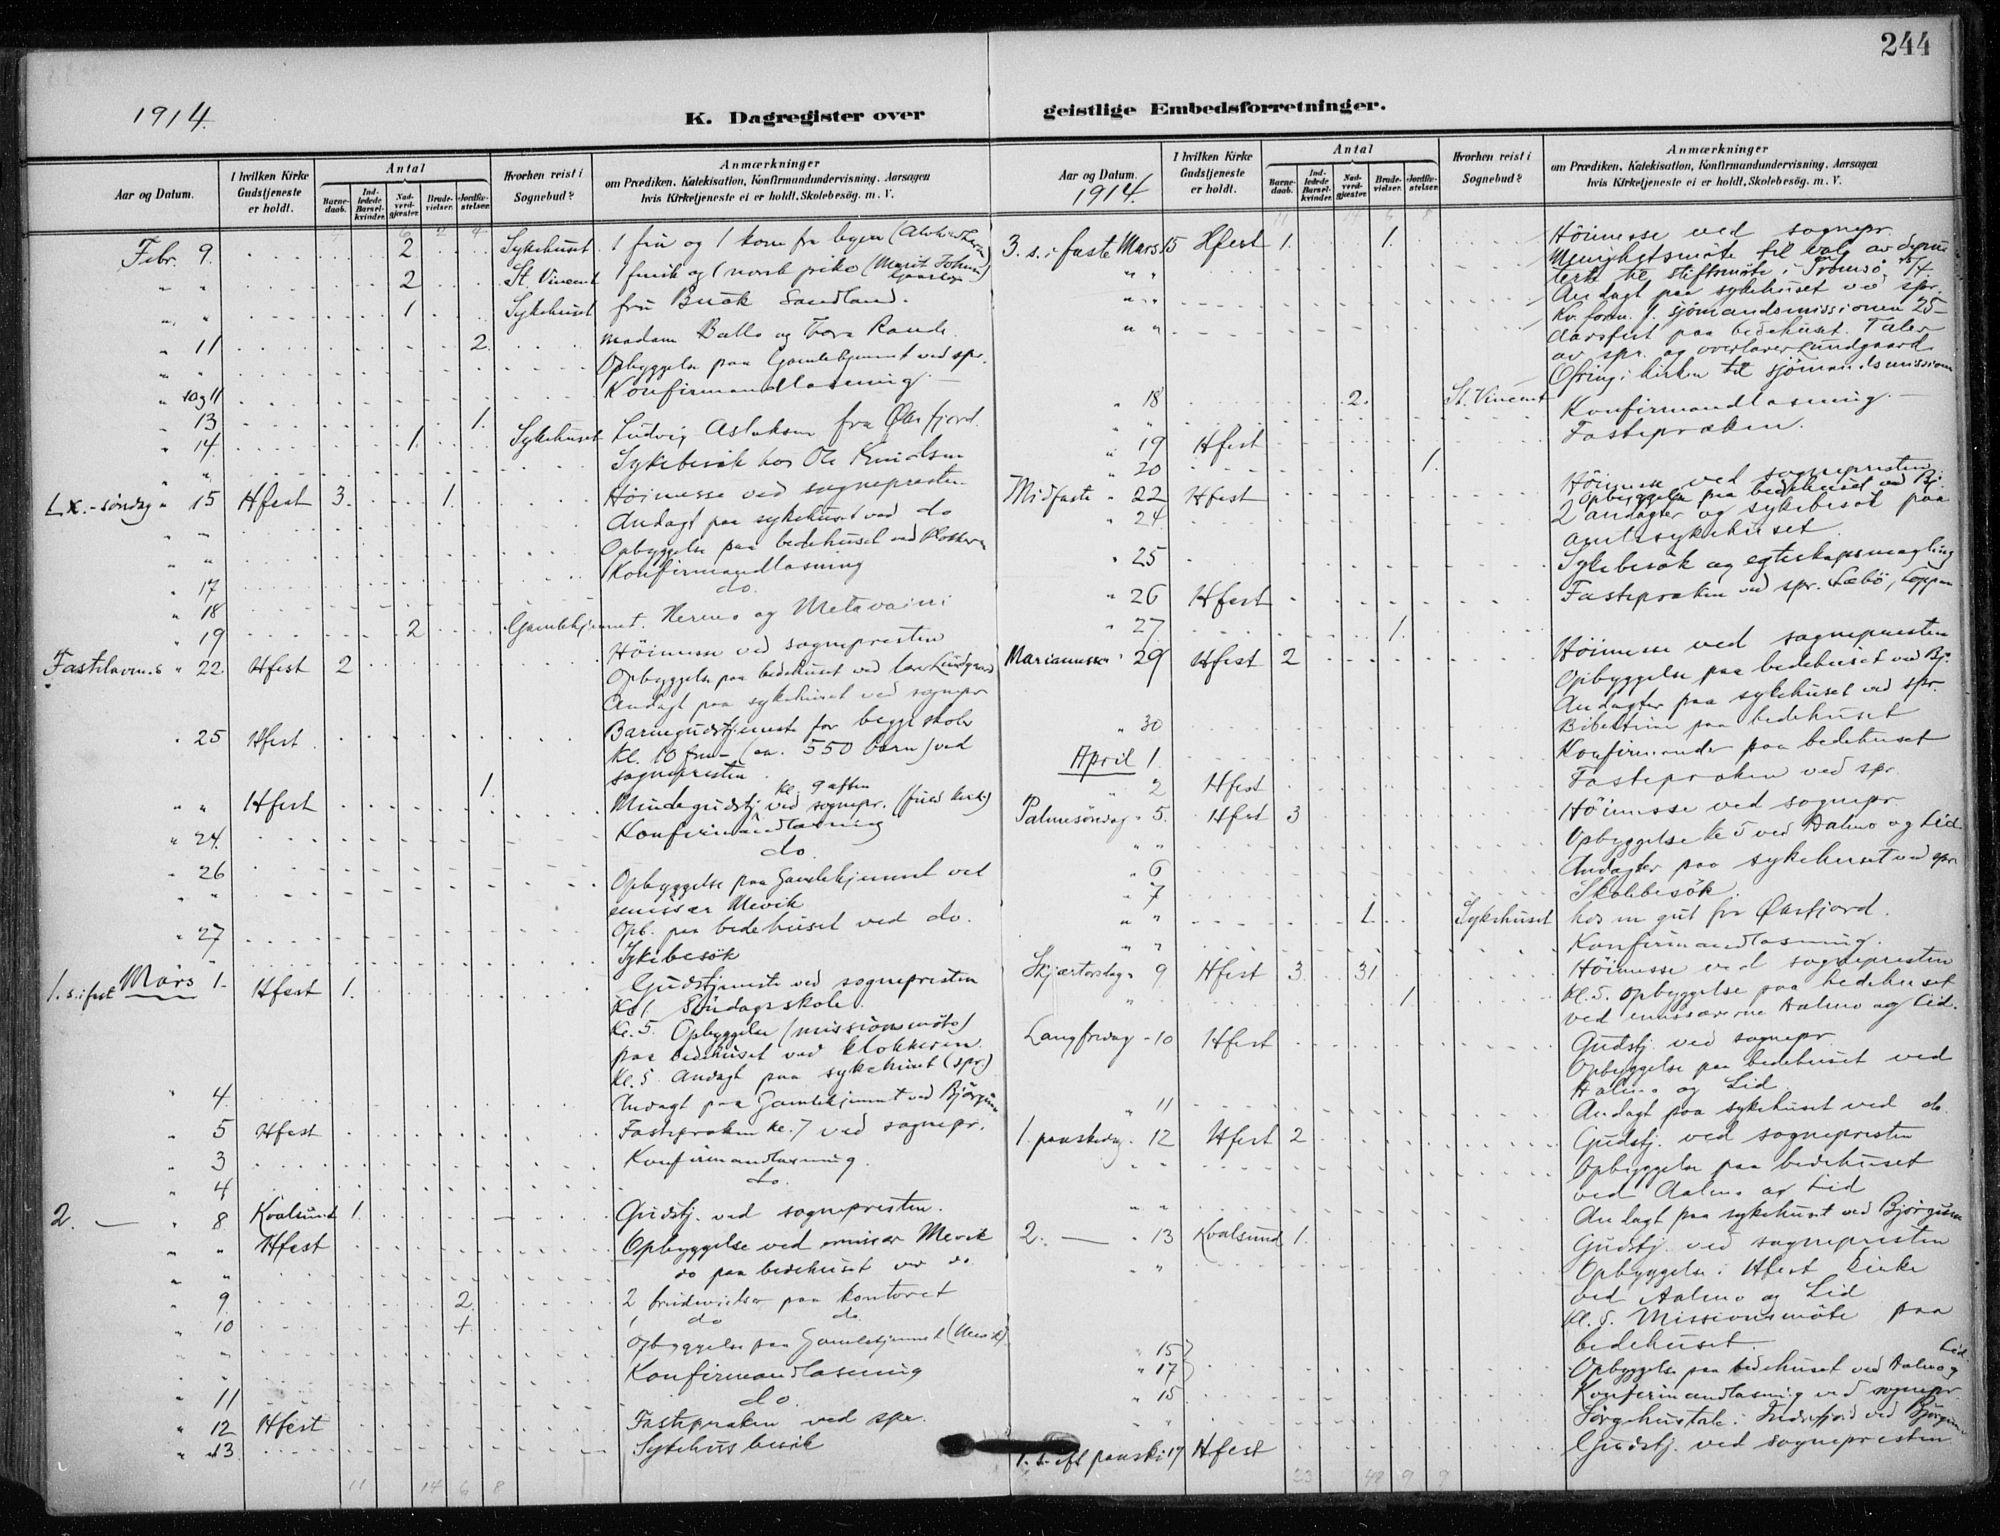 244
1914.
K. Dagregister over geistlige Embedsforretninger.
Aar og Datum.
I hvilken Kirke Gudstjeneste er holdt.
Antal
Barne-daab.
Ind-ledede Barsel-kvinder.
Nad-verd-gjæster.
Brude-vielser.
Jordfæ-stelser.
Hvorhen reist i Sognebud?
Anmærkninger
om Prædiken, Katekisation, Konfirmandundervisning, Aarsagen
hvis Kirketjeneste ei er holdt, Skolebesøg. m. V.
Febr. 9. 2 Sykehuset. 1 fru og 1 kone fra byen
" " 2 St. Vincent 1 finsk og 1 norsk pike
" " 1 Sykehuset fru Buck Sandland.
" 11 2. madam Balle og Tora Rande.
" " Opbyggelse paa Gamlehjemmet ved spr.
" 10 og 11 Konfirmandlæsning.
" 13 1. Ludvig Aslaksen fra Øksfjord.
" 14 1. Sykehuset
" Sykebesök hos Ole Knudsen
Lx.-söndag " 15 Hfest 3. 1. Höimesse ved sognepresten
" " Andagt paa sykehuset ved do
" " Opbyggelse paa bedehuset ved klokkeren
" 17 Konfirmandlæsning
" 18 do.
" 19 2 Gamlehjemmet.
Fastelavns " 22. Hfest 2 Höimesse ved sognepresten
Opbyggelse paa bedehuset ved lærer Lundgaard
Andagt paa sykehuset ved sognepr
" 25 Hfest Barnegudstjeneste for begge skoler
kl. 10 fm. (ca. 550 barn) ved
sognepresten.
" " Hfest 1. Mindegudstj. kl. 9 aften ved sognepr.
" 24. Konfirmandlæsning
" 26 do.
" " Opbyggelse paa Gamlehjemmet ved
emissær Mevik
" 27 Opb. paa bedehuset ved do.
Sykebesök
1. s. i fast Mars 1. Hfest 1. Gudstjeneste ved sognepresten
Kl 1. Söndagsskole
Kl. 5. Opbyggelse (missionsmöte)
paa bedehuset ved klokkeren.
Kl. 5. Andagt paa sykehuset (spr.)
" 4. Andagt paa Gamlehjemmet ved Björgum
" 5 Hfest Fasteprœken kl. 7 ved sognepr.
" 3 Konfirmandlæsning.
" 4 do.
2. — " 8 Kvalsund 1. Gudstj. ved sognepresten.
" " Hfest Opbyggelse ved emissær Mevik
" " do paa bedehuset ved do
" 9 2. 2 brudevielser paa kontoret
" 10 1 do do
" Opbyggelse paa Gamlehjemmet (Mevik)
Konfirmandlæsning
" 11 do.
" 12 Hfest Fasteprœken ved spr.
" 13 Sykehusbesök
11 14 6 8
Aar og Datum.
1914.
I hvilken Kirke Gudstjeneste er holdt.
Antal
Barne-daab.
Ind-ledede Barsel-kvinder.
Nad-verd-gjæster.
Brude-vielser.
Jordfæ-stelser.
Hvorhen reist i Sognebud?
Anmærkninger
om Prædiken, Katekisation, Konfirmandundervisning, Aarsagen
hvis Kirketjeneste ei er holdt, Skolebesøg. m. V.
11 14 6 8
3. s. i faste Mars 15 Hfest 1. 1. Höimesse ved sognepr.
" " Menighetsmöte til valg av depu
terte til stiftsmöte i Tromsö
" " Andagt paa sykehuset ved spr.
" " Kv. foren. f. sjömandsmissionen 25-
aarsfest paa bedehuset. Taler
av spr. og overlærer Lundgaard
Ofring i kirken til sjömandsmissionen
" 18 2. St. Vincent
" Konfirmandlæsning.
" 19 Hfest Fasteprœken.
" 20 1.
Midfaste " 22 Hfest Höimesse ved sognepresten
Opbyggelse paa bedehuset ved Bj.
" 24 2 andagter og sykebesök paa
amtssykehuset.
" 25 Sykebesök og egteskapsmægling
" 26 Hfest Fasteprœken ved spr. Læbö, Loppen
" 27 1.
Mariamesse " 29 Hfest 2 Höimesse ved sognepresten
Opbyggelse paa bedehuset ved Bj.
Andagter paa sykehuset ved spr.
" 30 Bibeltime paa bedehuset
April 1. Konfirmander paa bedehuset
" 2 Hfest Fasteprœken ved spr.
Palmesöndag " 5. Hfest 3 Höimesse ved sognepr.
" " Opbyggelse kl 5 ved Aalmo og Lid.
Andagter paa sykehuset ved spr
" 6 Skolebesök.
" 7 1. Sykehuset hos en gut fra Øksfjord.
" " Konfirmandlæsning.
Skjærtorsdag " 9 Hfest 3. 31 Höimesse ved sognepresten
" 1. Kl. 5. Opbyggelse paa bedehuset
ved emissærerne Aalmo og Lid.
Langfredag " 10 Hfest Gudstj. ved sognepr.
Opbyggelse paa bedehuset ved
Aalmo og Lid.
" 11 Andagt paa sykehuset ved do.
1. paaskedag " 12 Hfest 2 Gudstj. ved sognepresten
" " Opbyggelse paa bedehuset
ved Aalmo og Lid
" " Andagt paa sykehuset ved Björgum
2. — " 13 Kvalsund 1. Gudstj. ved sognepresten
" " Opbyggelse i Hfest kirke
ved Aalmo og Lid
Kl. 5. Missionsmöte paa
bedehuset.
" 15 } " 17 } Opbyggelse paa bedehuset ved Aalmo og Lid.
" 15 Konfirmandlæsning ved sognepr.
" Sörgehustale i Indrefjord ved Björgum
1. s. eft paaske 19 Hfest Gudstj. ved sognepresten
23 48 9 9